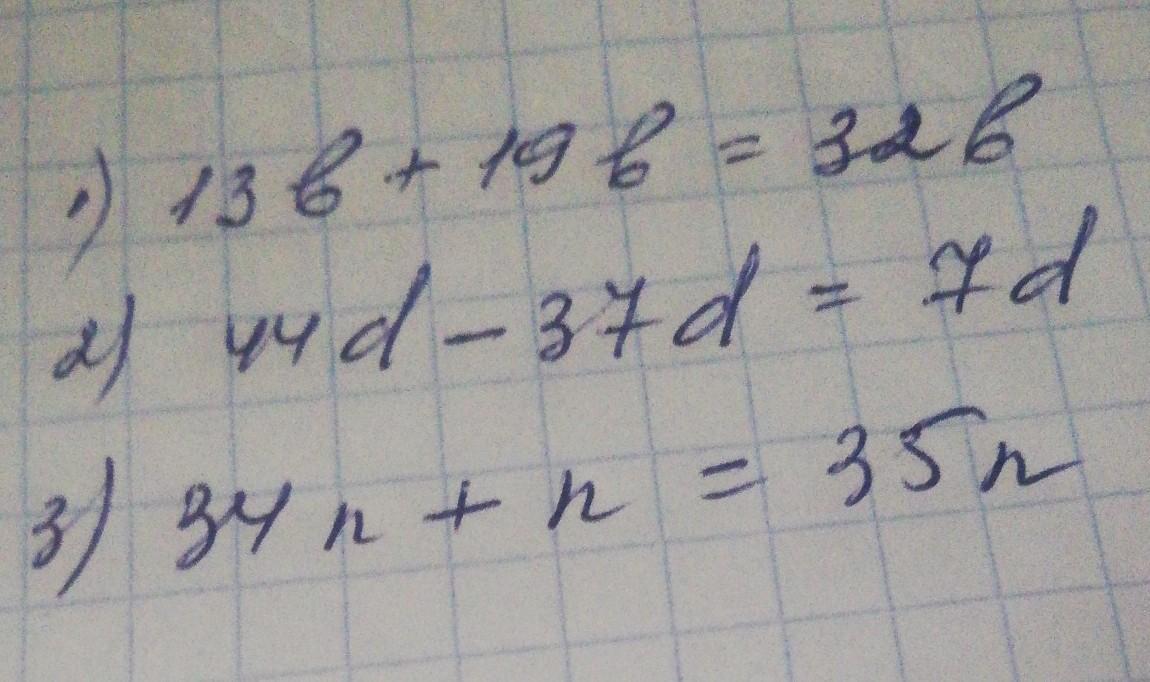 1) 13b + 19b = 32b
2) 44d - 37d = 7d
3) 34n + n = 35n